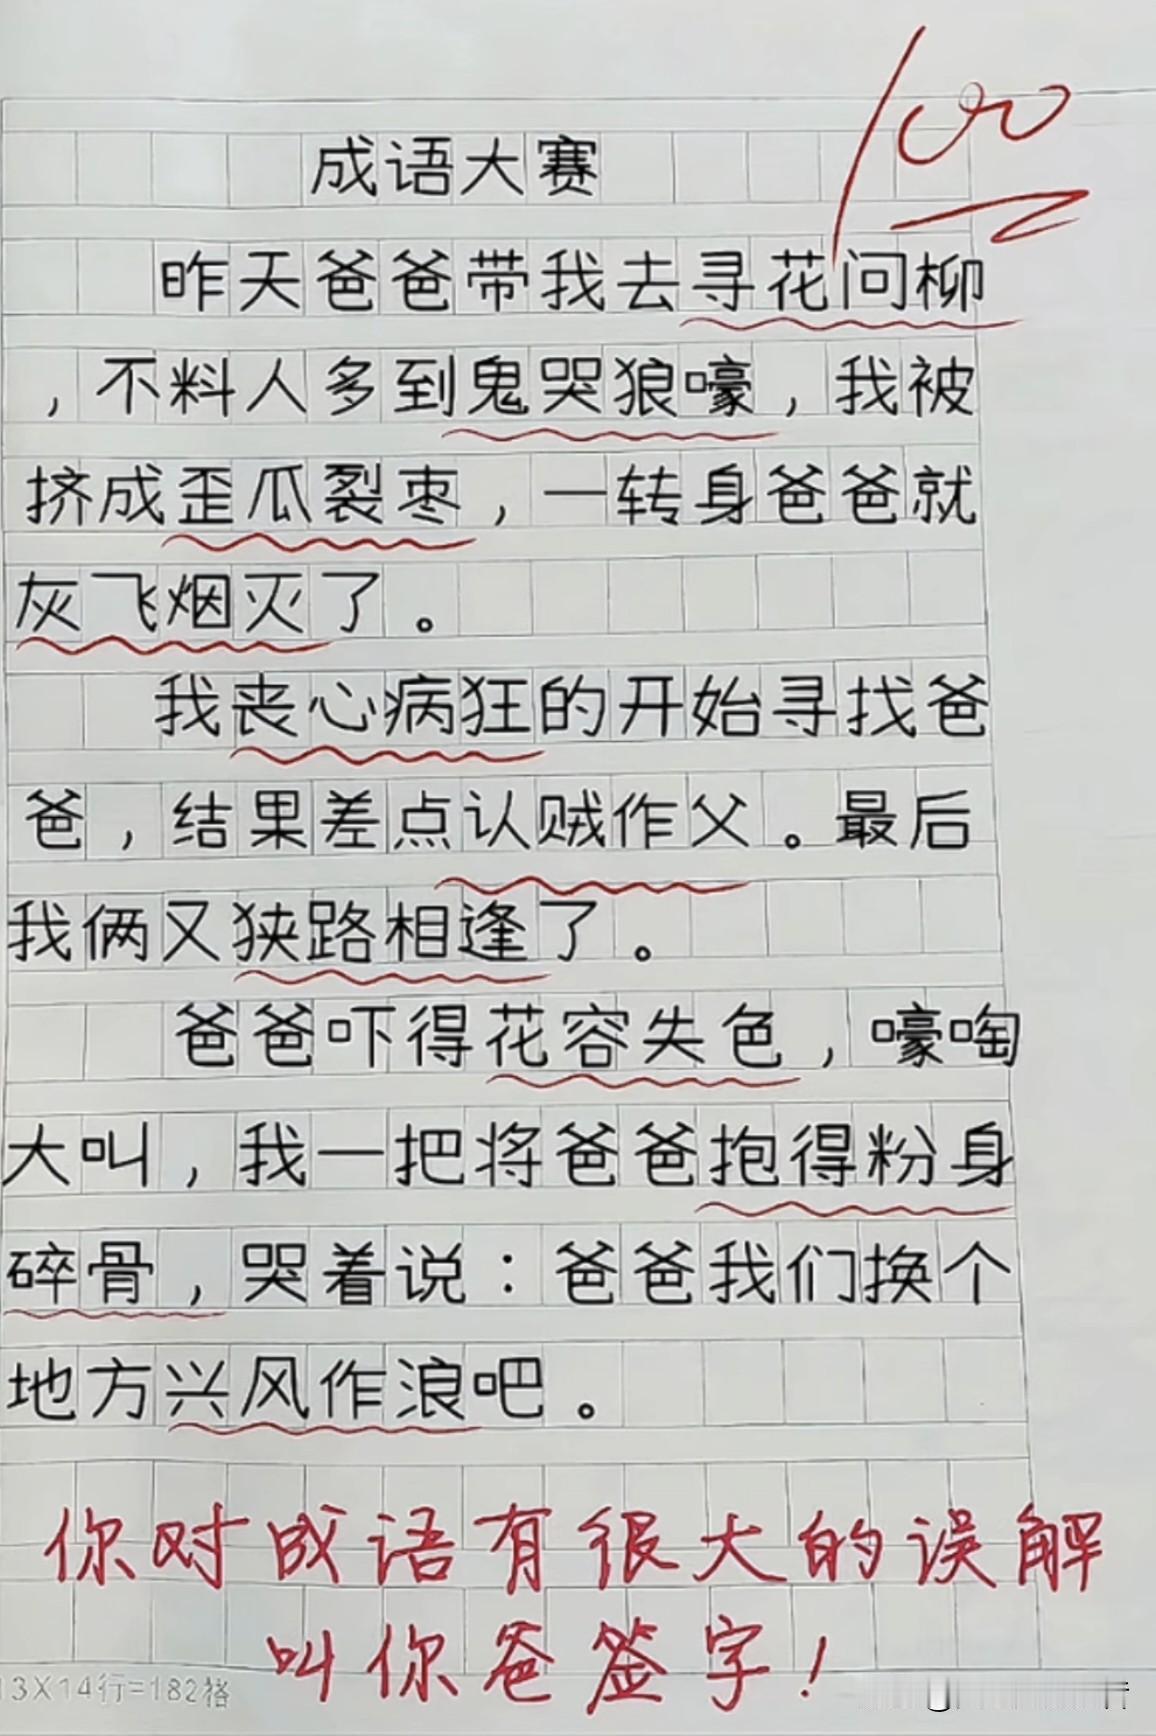 100
成语大赛
昨天爸爸带我去寻花问柳
，不料人多到鬼哭狼嚎，我被
挤成歪瓜裂枣，一转身爸爸就
灰飞烟灭了。
我丧心病狂的开始寻找爸
爸，结果差点认贼作父。最后
我俩又狭路相逢了。
爸爸吓得花容失色，嚎啕
大叫，我一把将爸爸抱得粉身
碎骨，哭着说：爸爸我们换个
地方兴风作浪吧。
你对成语有很大的误解
叫你爸签字！
13X14行=182格